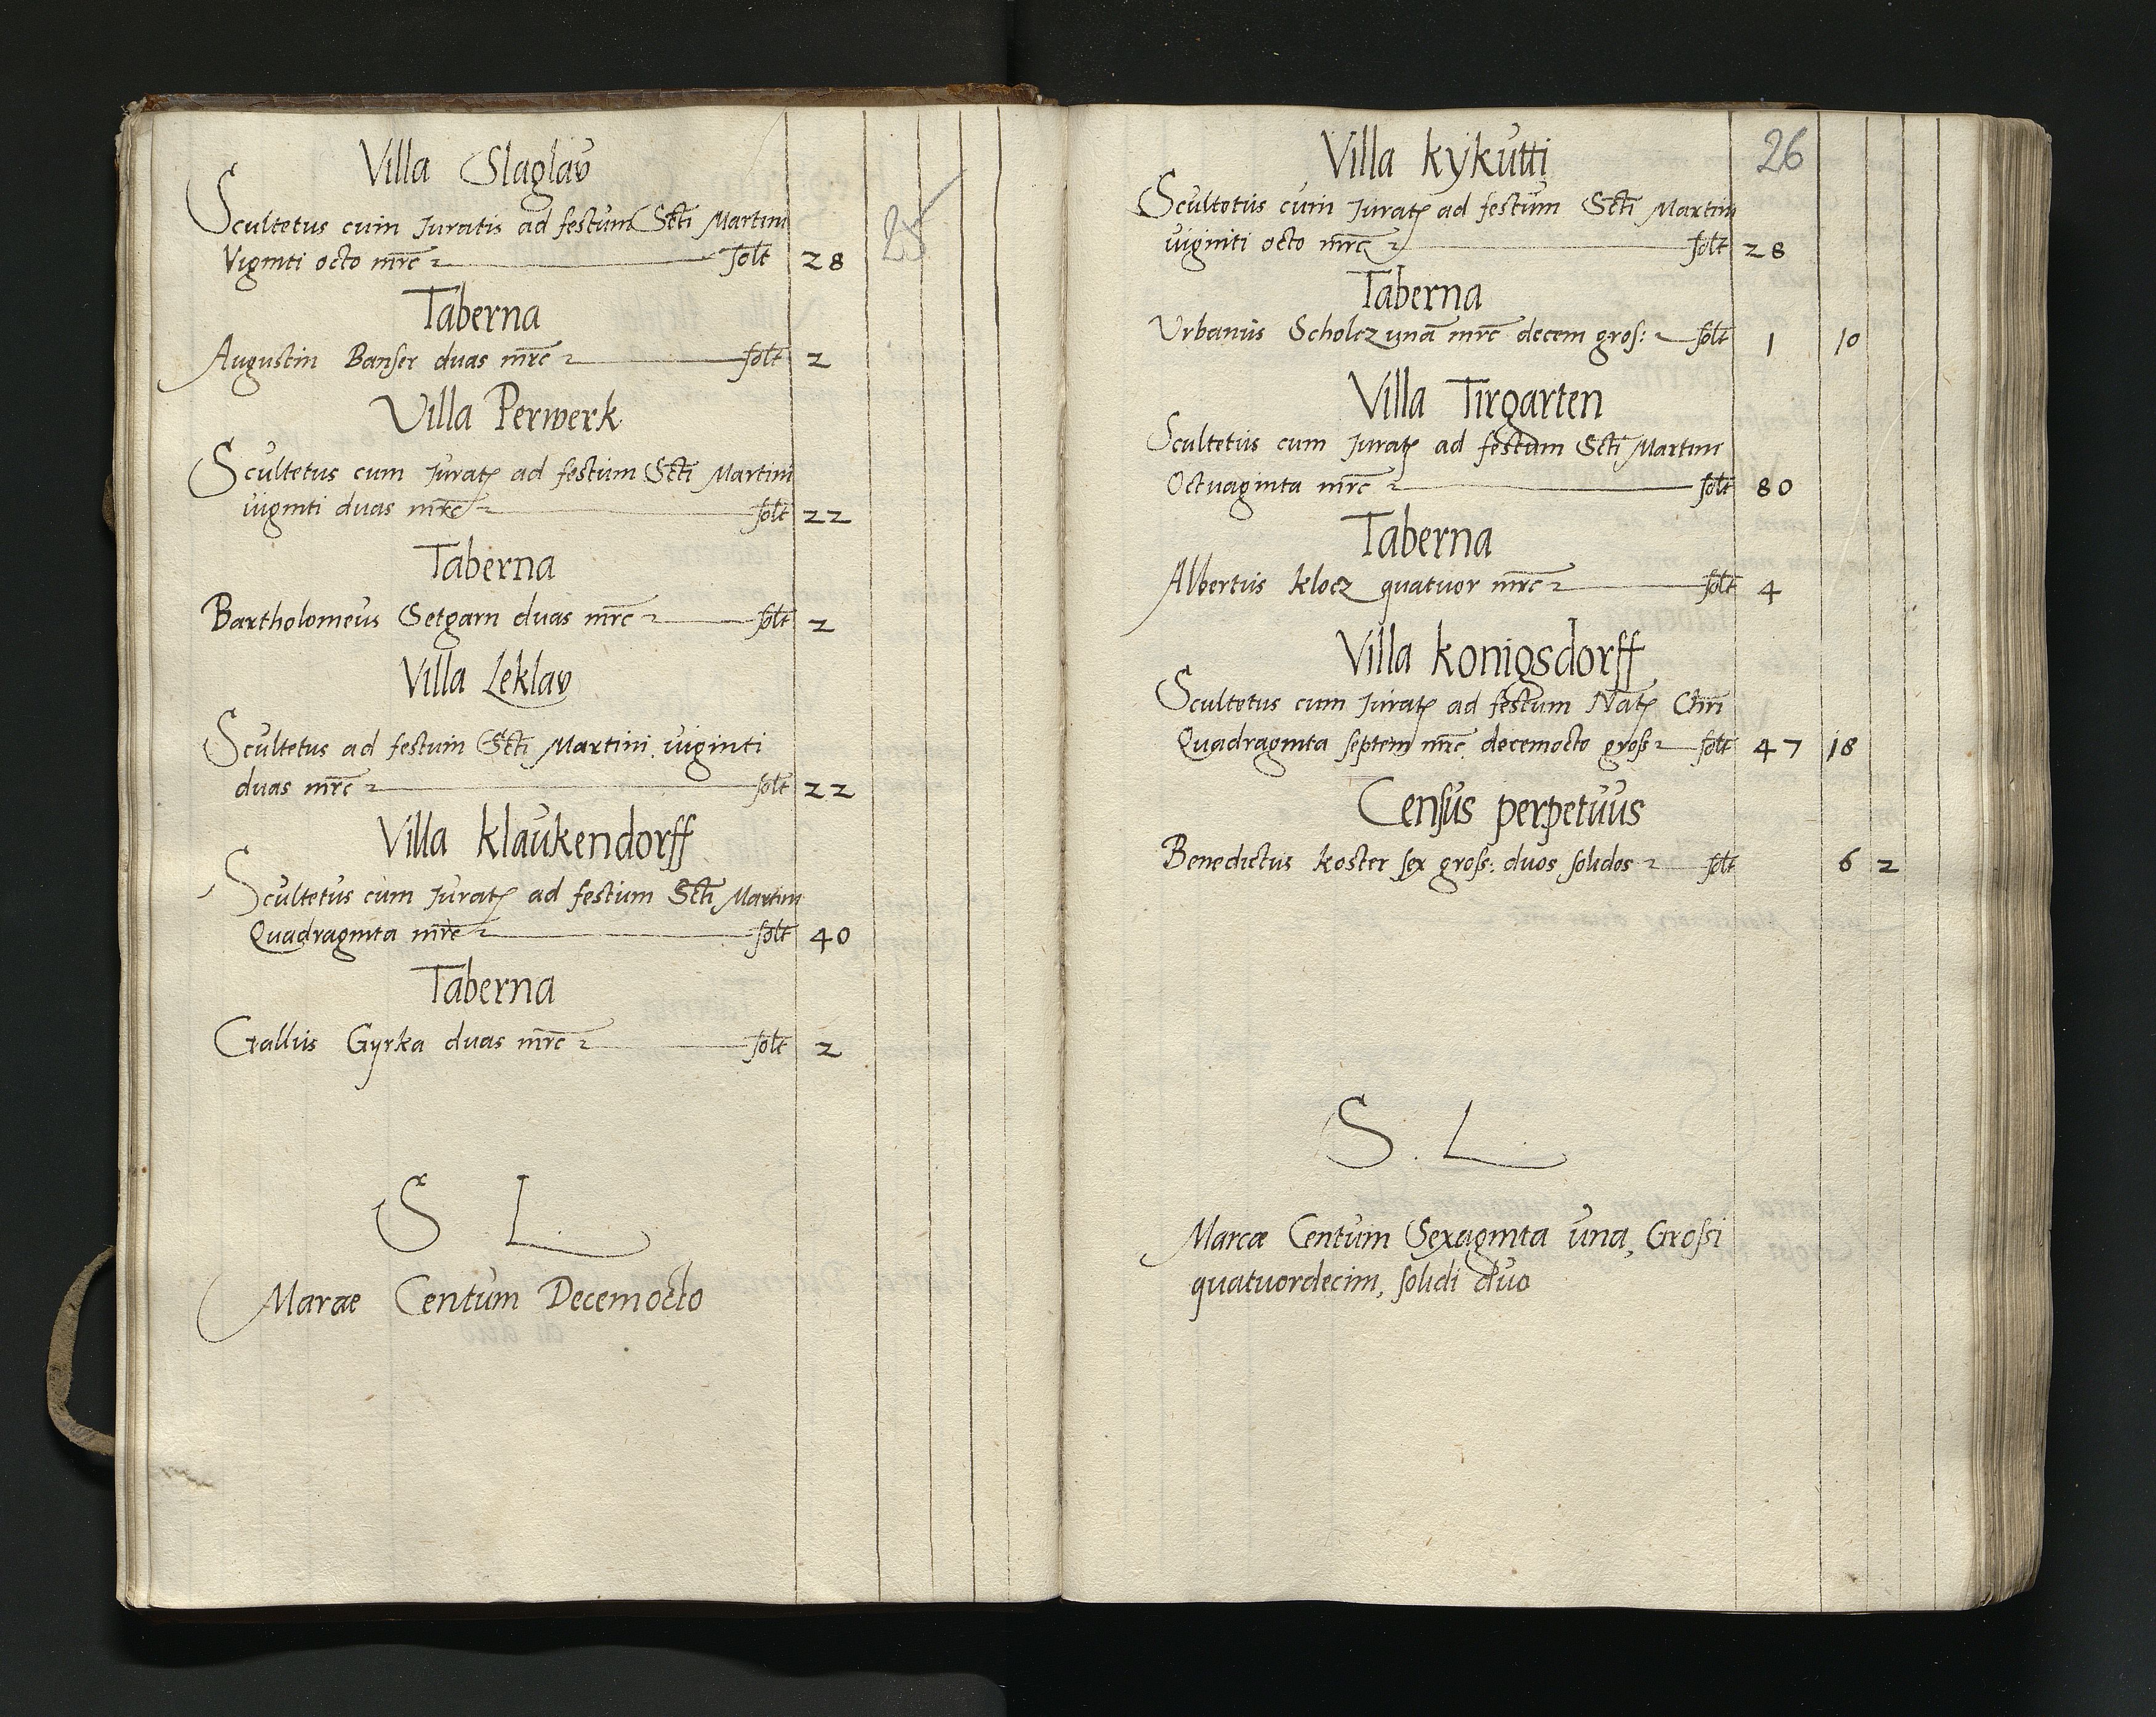 Villa Slaglav
25
Scultetus cum Juratis ad festum Scti Martini
Viginti octo mrc solt 28
Taberna
Augustin Banser duas mrc solt 2
Villa Perwerk
Scultetus cum Jurat ad festum Scti Martini
viginti duas mrc solt 22
Taberna
Bartholomeus Setgarn duas mrc solt 2
Villa Leklav
Scultetus ad festum Scti Martini viginti
duas mrc solt 22
Villa klaukendorff
Scultetus cum Jurat ad festum Scti Martini
Quadraginta mrc solt 40
Taberna
Gallus Gyrka duas mrc solt 2
S L
Marcae Centum Decemocto
26
Villa kÿkutti
Scultetus cum Jurat ad festum Scti Martini
viginiti octo mrc solt 28
Taberna
Urbanus Scholcz unã mrc decem gros: solt 1 10
Villa Tirgarten
Scultetus cum Jurat ad festum Scti Martini
Octuaginta mrc solt 80
Taberna
Albertus klocz quatuor mrc solt 4
Villa konigsdorff
Scultetus cum Jurat ad festum Nat Chri
Quadraginta septem mrc decemocto gross solt 47 18
Census perpetuus
Benedictus koster sex gross: duos solidos solt 6 2
S. L
Marcæ Centum Sexaginta una, Grossi
quatuordecim, solidi duo